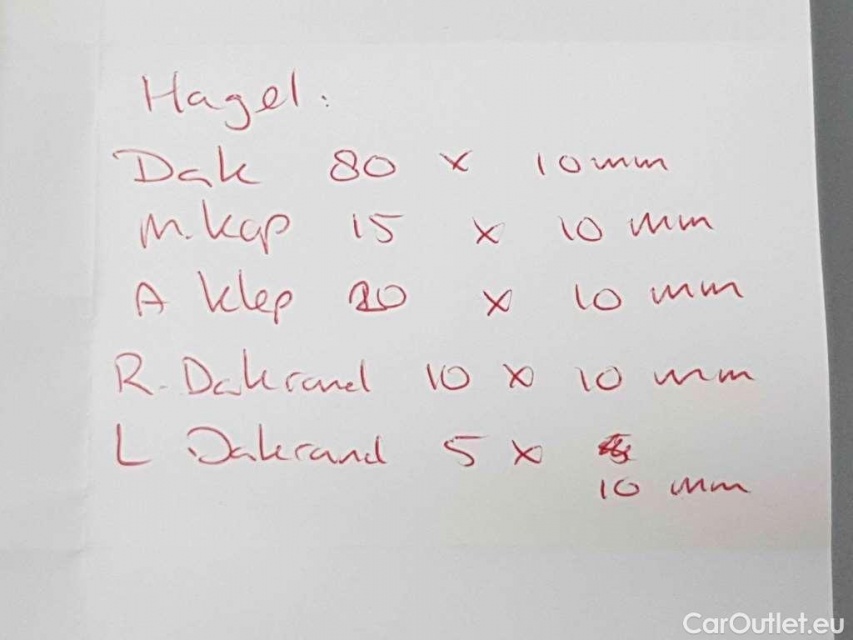 Hagel:
Dak 80 x 10mm
M.kap 15 x 10 mm
A klep 20 x 10 mm
R. Dakrand 10 x 10 mm
L Dakrand 5 x
10 mm
CarOutlet.eu